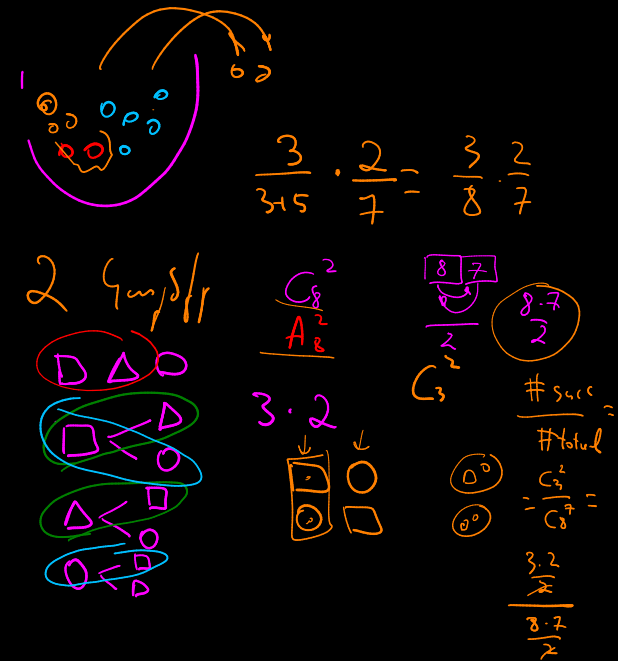 3/(3+5) · 2/7 = 3/8 · 2/7
2
C_8^2
A_8^2
8 7
2
8·7/2
C_3^2
3·2
# succ
# total
=
= C_3^2/C_8^7 =
3·2/2
8·7/2